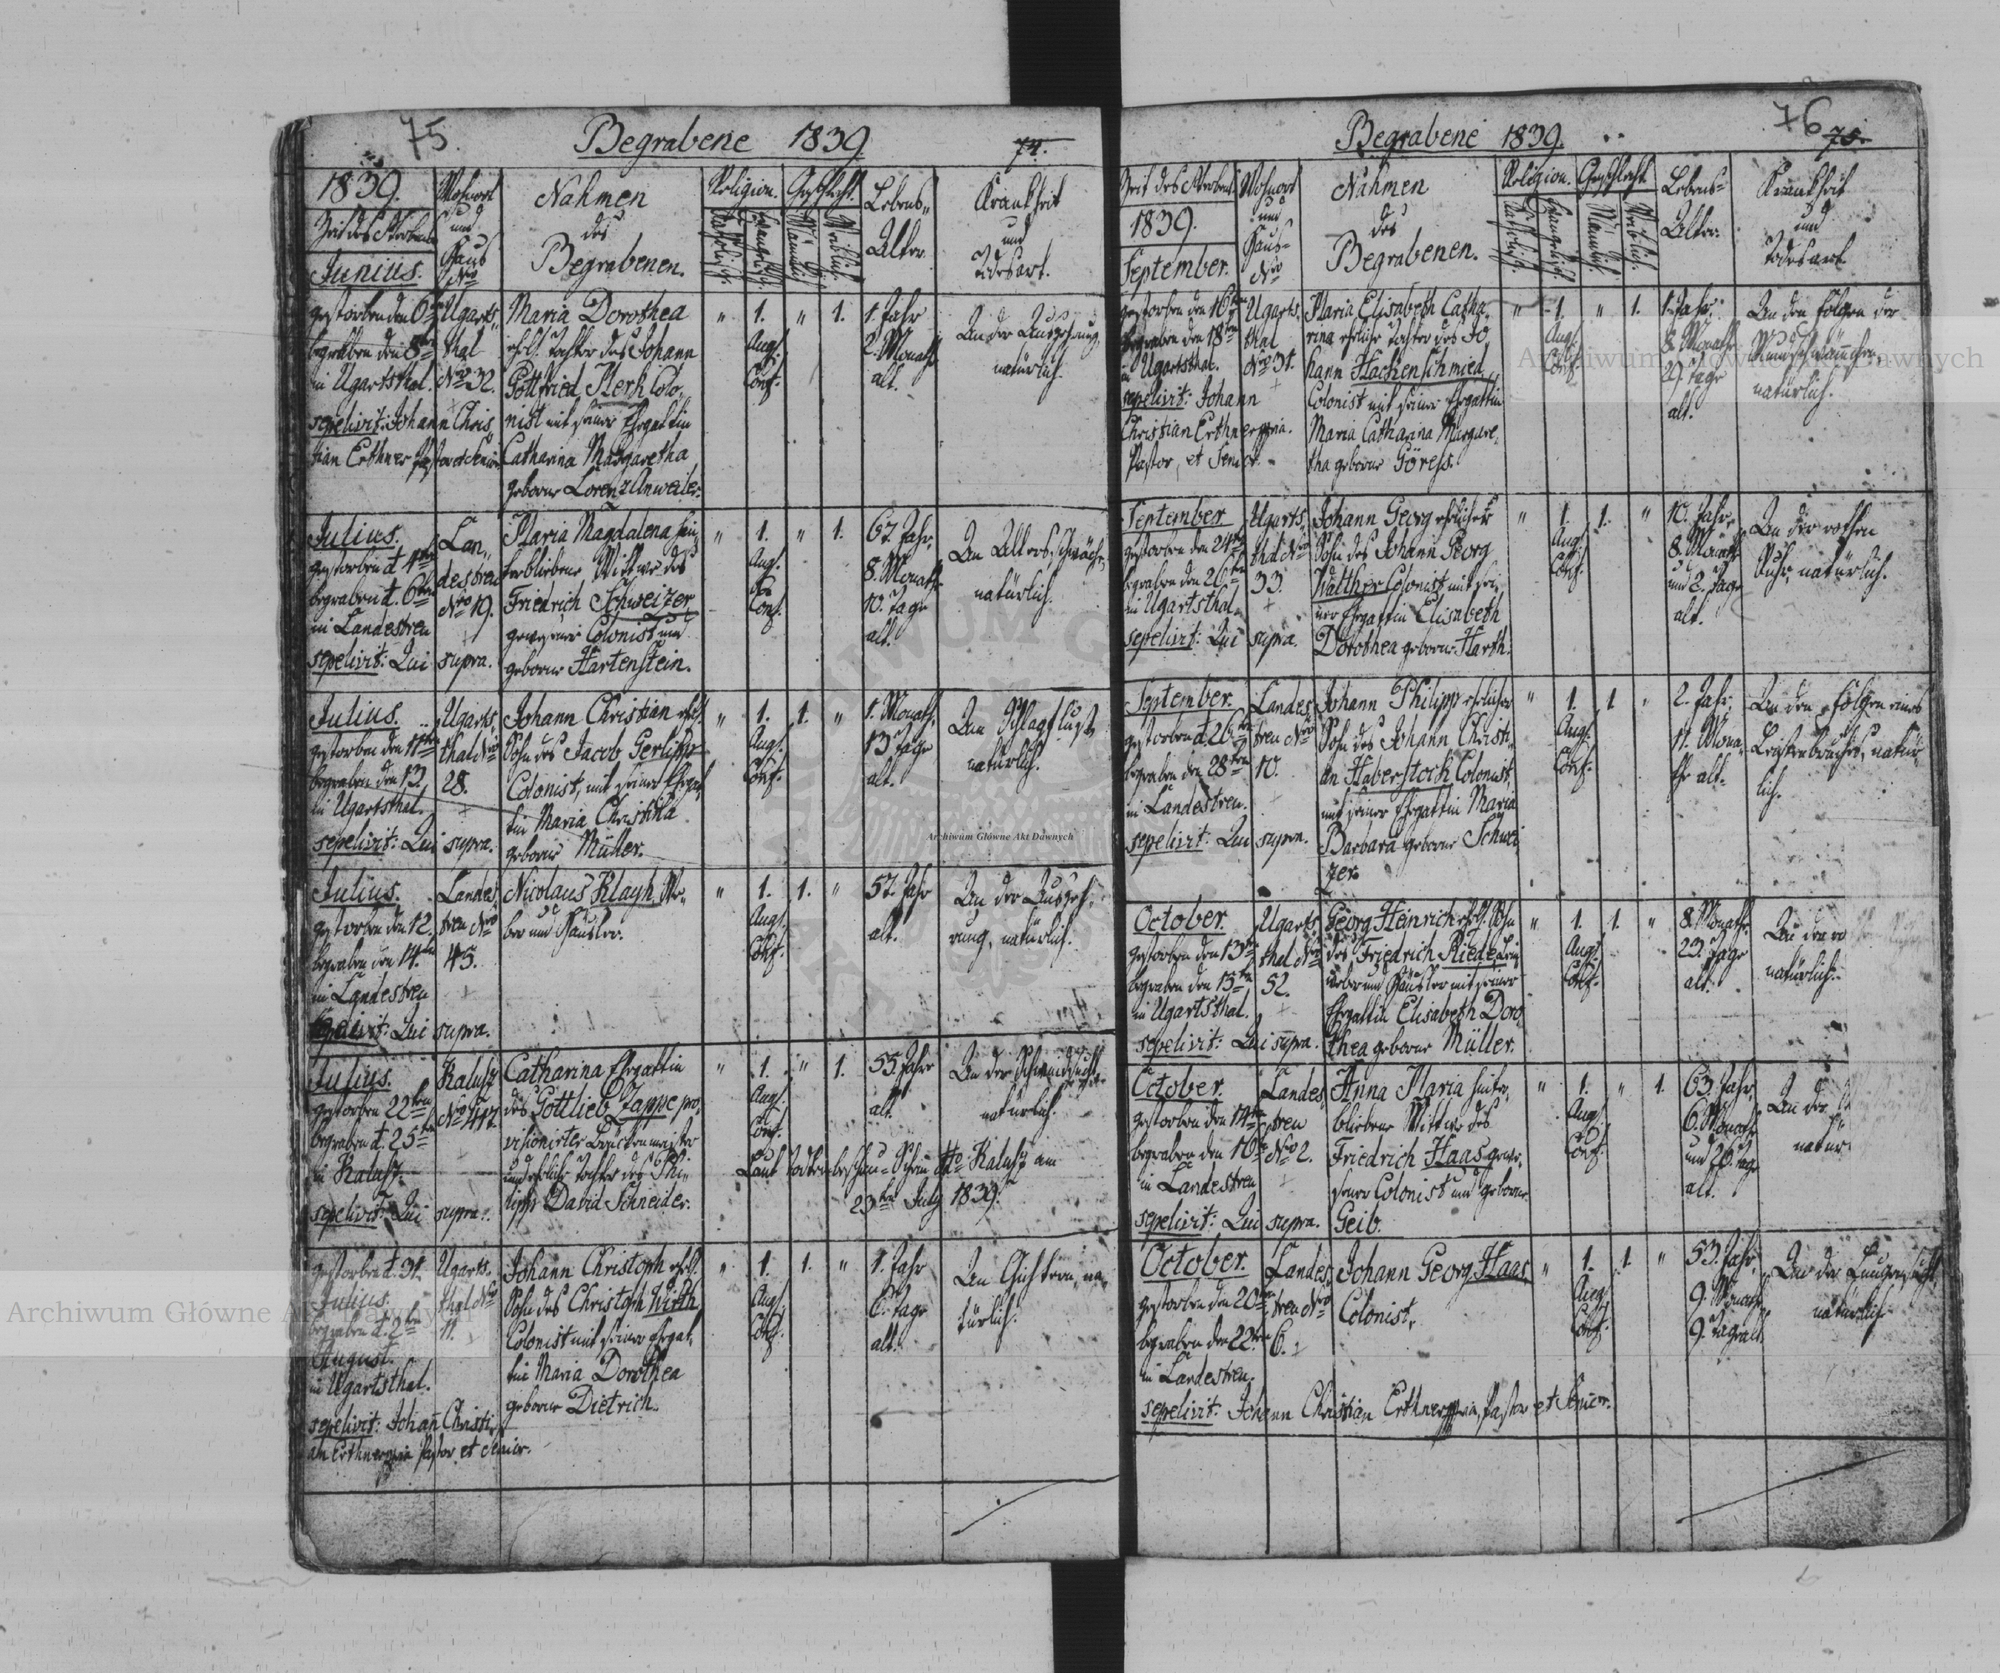 75.
Begrabene 1839
74.
1839.
Zeit des Sterbens
Junius.
Wohnort
und
Haus
Nro
Nahmen
des
Begrabenen.
Religion.
Katholisch.
Evangelisch.
Geschlecht.
Männlich.
Weiblich.
Lebens-
Alter.
Krankheit
und
Todesart.
gestorben den 6ten
begraben den 8ten
in Ugartsthal.
sepelivit: Johann Chris
tian Erthner Pastor et Senior
Ugarts-
thal
Nro 32.
Maria Dorothea
ehel. Tochter des Johann
Gottfried Kerk Colo-
nist mit seiner Ehegattin
Catharina Margaretha
geborne Lorenz Anweiler.
" 1. " 1.
Augs.
Conf.
1. Jahr
2. Monath
alt.
An der Auszehrung,
natürlich.
Julius.
gestorben d. 4ten
begraben d. 6ten
in Landestreu
sepelivit: Qui supra.
Lan-
destreu
Nro 19.
Maria Magdalena hin-
terbliebene Wittwe des
Friedrich Schweizer
gewesener Colonist und
geborne Hartenstein.
" 1. " 1.
Augs.
Conf.
67. Jahr,
8. Monath
10. Tage
alt.
An Altersschwäche,
natürlich.
Julius.
gestorben den 11ten
begraben den 13.
in Ugartsthal.
sepelivit: Qui supra.
Ugarts-
thal Nro
28.
Johann Christian ehel.
Sohn des Jacob Gerlitz
Colonist, mit seiner Ehegat-
tin Maria Christina
geborne Müller.
" 1. 1. "
Augs.
Conf.
1. Monath,
13 Tage
alt.
Am Schlagfluß,
natürlich.
Julius.
gestorben den 12.
begraben den 14ten
in Landestreu
sepelivit: Qui supra.
Landes-
treu Nro
45.
Nicolaus Klayh We-
ber und Häusler.
" 1. 1. "
Augs.
Conf.
57. Jahr
alt.
An der Auszeh-
rung, natürlich.
Julius.
gestorben 22ten
begraben d. 25ten
in Kalusz.
sepelivit: Qui supra.
Kalusz
Nro 417.
Catharina Ehegattin
des Gottlieb Zappe pro-
visionirter
und eheliche Tochter des Phi-
lipp David Schneider.
" 1. " 1.
Augs.
Conf.
55. Jahr
alt.
An der Schwindsucht,
natürlich.
Laut Todtenbeschau-Schein dto Kalusz am
23ten July 1839.
gestorben d. 31.
Julius.
begraben d. 2ten
August.
in Ugartsthal.
sepelivit: Johann Christi-
an Erthner Pastor et Senior.
Ugarts-
thal Nro
11.
Johann Christoph ehel.
Sohn des Christoph Wirth,
Colonist mit seiner Ehegat-
tin Maria Dorothea
geborne Dietrich.
" 1. 1. "
Augs.
Conf.
1. Jahr
6. Tage
alt.
An Gichtern, na-
türlich.
76
75.
Begrabene 1839.
Zeit des Sterbens
1839.
September.
Wohnort
und
Haus-
Nro
Nahmen
des
Begrabenen.
Religion.
Katholisch.
Evangelisch.
Geschlecht.
Männlich.
Weiblich.
Lebens-
Alter.
Krankheit
und
Todesart.
gestorben den 16ten
begraben den 18ten
in Ugartsthal.
sepelivit: Johann
Christian Erthner
Pastor, et Senior.
Ugarts-
thal
Nro 31.
Maria Elisabeth Catha-
rina eheliche Tochter des Jo-
hann Hachenschmied,
Colonist mit seiner Ehegattin
Maria Catharina Margare-
tha geborne Göress.
" 1. " 1.
Augs.
Conf.
1. Jahr,
8. Monath
29. Tage
alt.
An den Folgen der
natürlich.
September
gestorben den 24ten
begraben den 26ten
in Ugartsthal.
sepelivit: Qui supra.
Ugarts-
thal Nro
33.
Johann Georg ehelicher
Sohn des Johann Georg
Walther Colonist mit sei-
ner Ehegattin Elisabeth
Dorothea geborne Harth.
" 1. 1. "
Augs.
Conf.
10. Jahr,
8. Monath
und 2. Tage
alt.
An der rothen
Ruhr, natürlich.
September.
gestorben d. 26ten
begraben den 28ten
in Landestreu.
sepelivit: Qui supra.
Landes-
treu Nro
10.
Johann Philipp ehelicher
Sohn des Johann Christi-
an Haberstock Colonist,
mit seiner Ehegattin Maria
Barbara geborne Schwei-
zer.
" 1. 1 "
Augs.
Conf.
2. Jahr,
11. Mona-
the alt.
An den Folgen eines
Leistenbruches, natür-
lich.
October.
gestorben den 13ten
begraben den 15ten
in Ugartsthal.
sepelivit: Qui supra.
Ugarts-
thal Nro
52.
Georg Heinrich ehel. Sohn
des Friedrich Riede Lein-
weber und Häusler mit seiner
Ehegattin Elisabeth Doro-
thea geborne Müller.
" 1. 1. "
Augs.
Conf.
8. Monath,
23. Tage
alt.
An der ro
natürlich.
October.
gestorben den 14ten
begraben den 16ten
in Landestreu
sepelivit: Qui supra.
Landes-
treu
Nro 2.
Anna Maria hinter-
bliebene Wittwe des
Friedrich Haas gewe-
sener Colonist und geborne
Geib.
" 1. " 1.
Augs.
Conf.
63. Jahr,
6. Monath
und 26. Tage
alt.
An der
natür
October.
gestorben den 20ten
begraben den 22ten
in Landestreu.
sepelivit: Johann Christian Erthner Pastor et Senior.
Landes-
treu Nro
6.
Johann Georg Haas,
Colonist.
" 1. 1. "
Augs.
Conf.
53. Jahr,
9. Monath
9. Tage alt.
An der Lungensucht,
natürlich.
Archiwum Główne Akt Dawnych
Archiwum Główne Akt Dawnych
Archiwum Główne Akt Dawnych